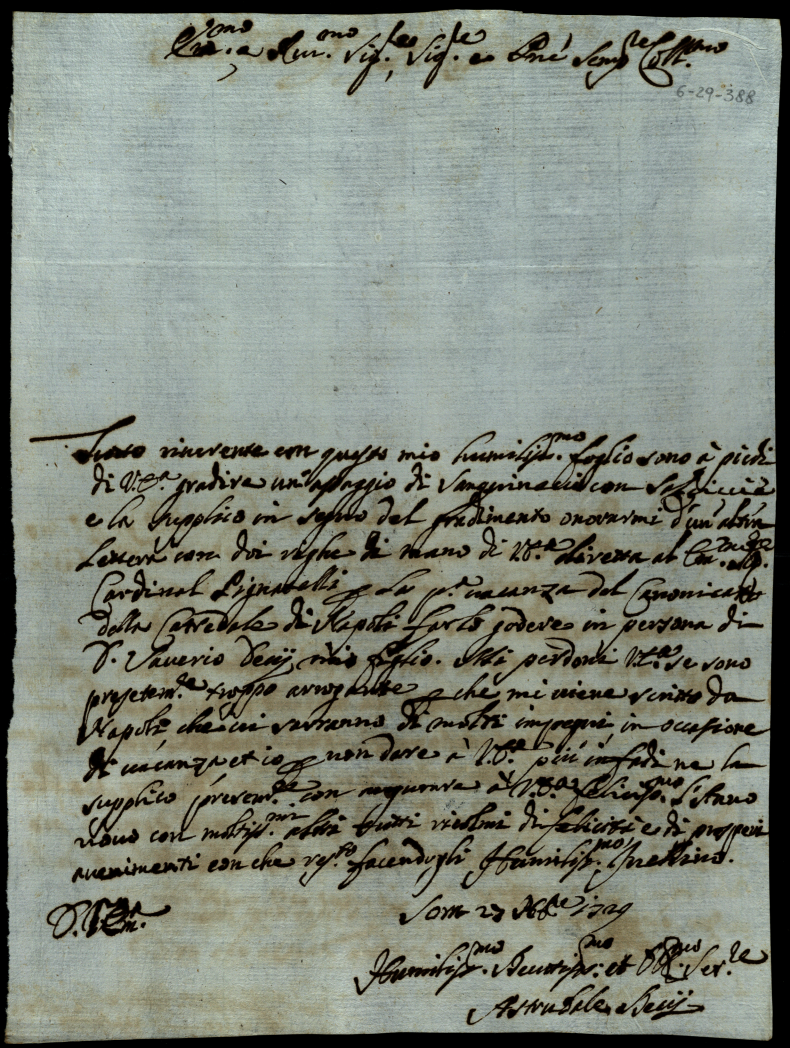 Em.mo e Rev.mo Sig.re Sig.re e Pne Semp.re Coll.mo
6-29-388
Tutto riverente con questo mio humilis.mo foglio sono à piedi
di V.E.a gradire un assaggio di Sanguinacci con Salciccie
e la supplico in segno del gradimento onorarmi d'un altra
Lettera con doi righe di mano di V.E.a diretta al Em.mo Sig.
Cardinal Pignatelli p la p.a vacanza del Canonicato
della Catredale di Napoli farlo godere in persona di
D. Saverio Decij mio figlio. Mi perdoni V.E.a se sono
presetem.te troppo arrogante p che mi viene scritto da
Napoli che vi saranno di molti impegni in occasione
di vacanza et io p non dare à V.E.a più infadi ne la
supplico presem.te con augurare à V.E.a felicis.mo l'Anno
novo con moltis.mi altri tutti ricolmi di felicità e di prosperi
avenimenti con che res.to facendogli Humilis.mo Inchino.
D. V. Em.a
Som 27 Xbre 1729
Humilis.mo Devotis.mo et Obl.mo Ser.re
Astrubale Decij